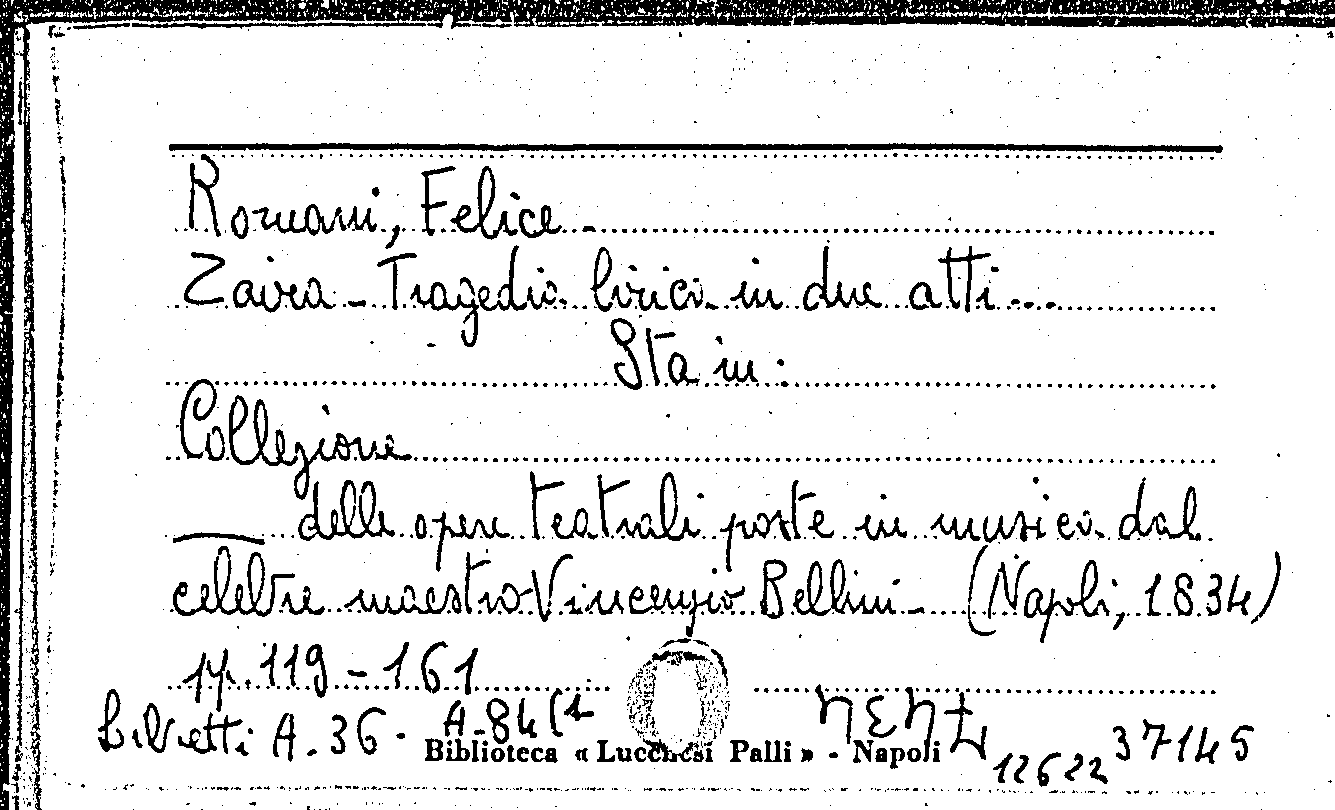 Romani, Felice -
Zaira - Tragedia lirica in due atti...
Sta in:
Collezione
delle opere teatrali poste in musica dal
celebre maestro Vincenzio Bellini - (Napoli, 1834)
pp. 119 - 161
Libretti A. 36 - A-84(1
Biblioteca « Lucchesi Palli » - Napoli
12622 37145